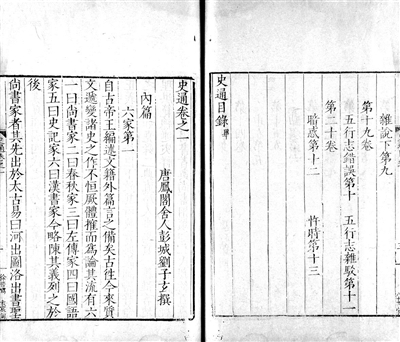 雜說下第九
第十九卷
五行志錯誤第十　五行志雜駁第十一
第二十卷
暗惑第十二　忤時第十三
史通目錄畢
史通卷之一
唐鳳閣舍人彭城劉子玄撰
內篇
六家第一
自古帝王編述文籍外篇言之備矣古往今來質
文遞變諸史之作不恒厥體榷而為論其流有六
一曰尚書家二曰春秋家三曰左傳家四曰國語
家五曰史記家六曰漢書家今略陳其義列之於
後
尚書家者其先出於太古易曰河出圖洛出書聖